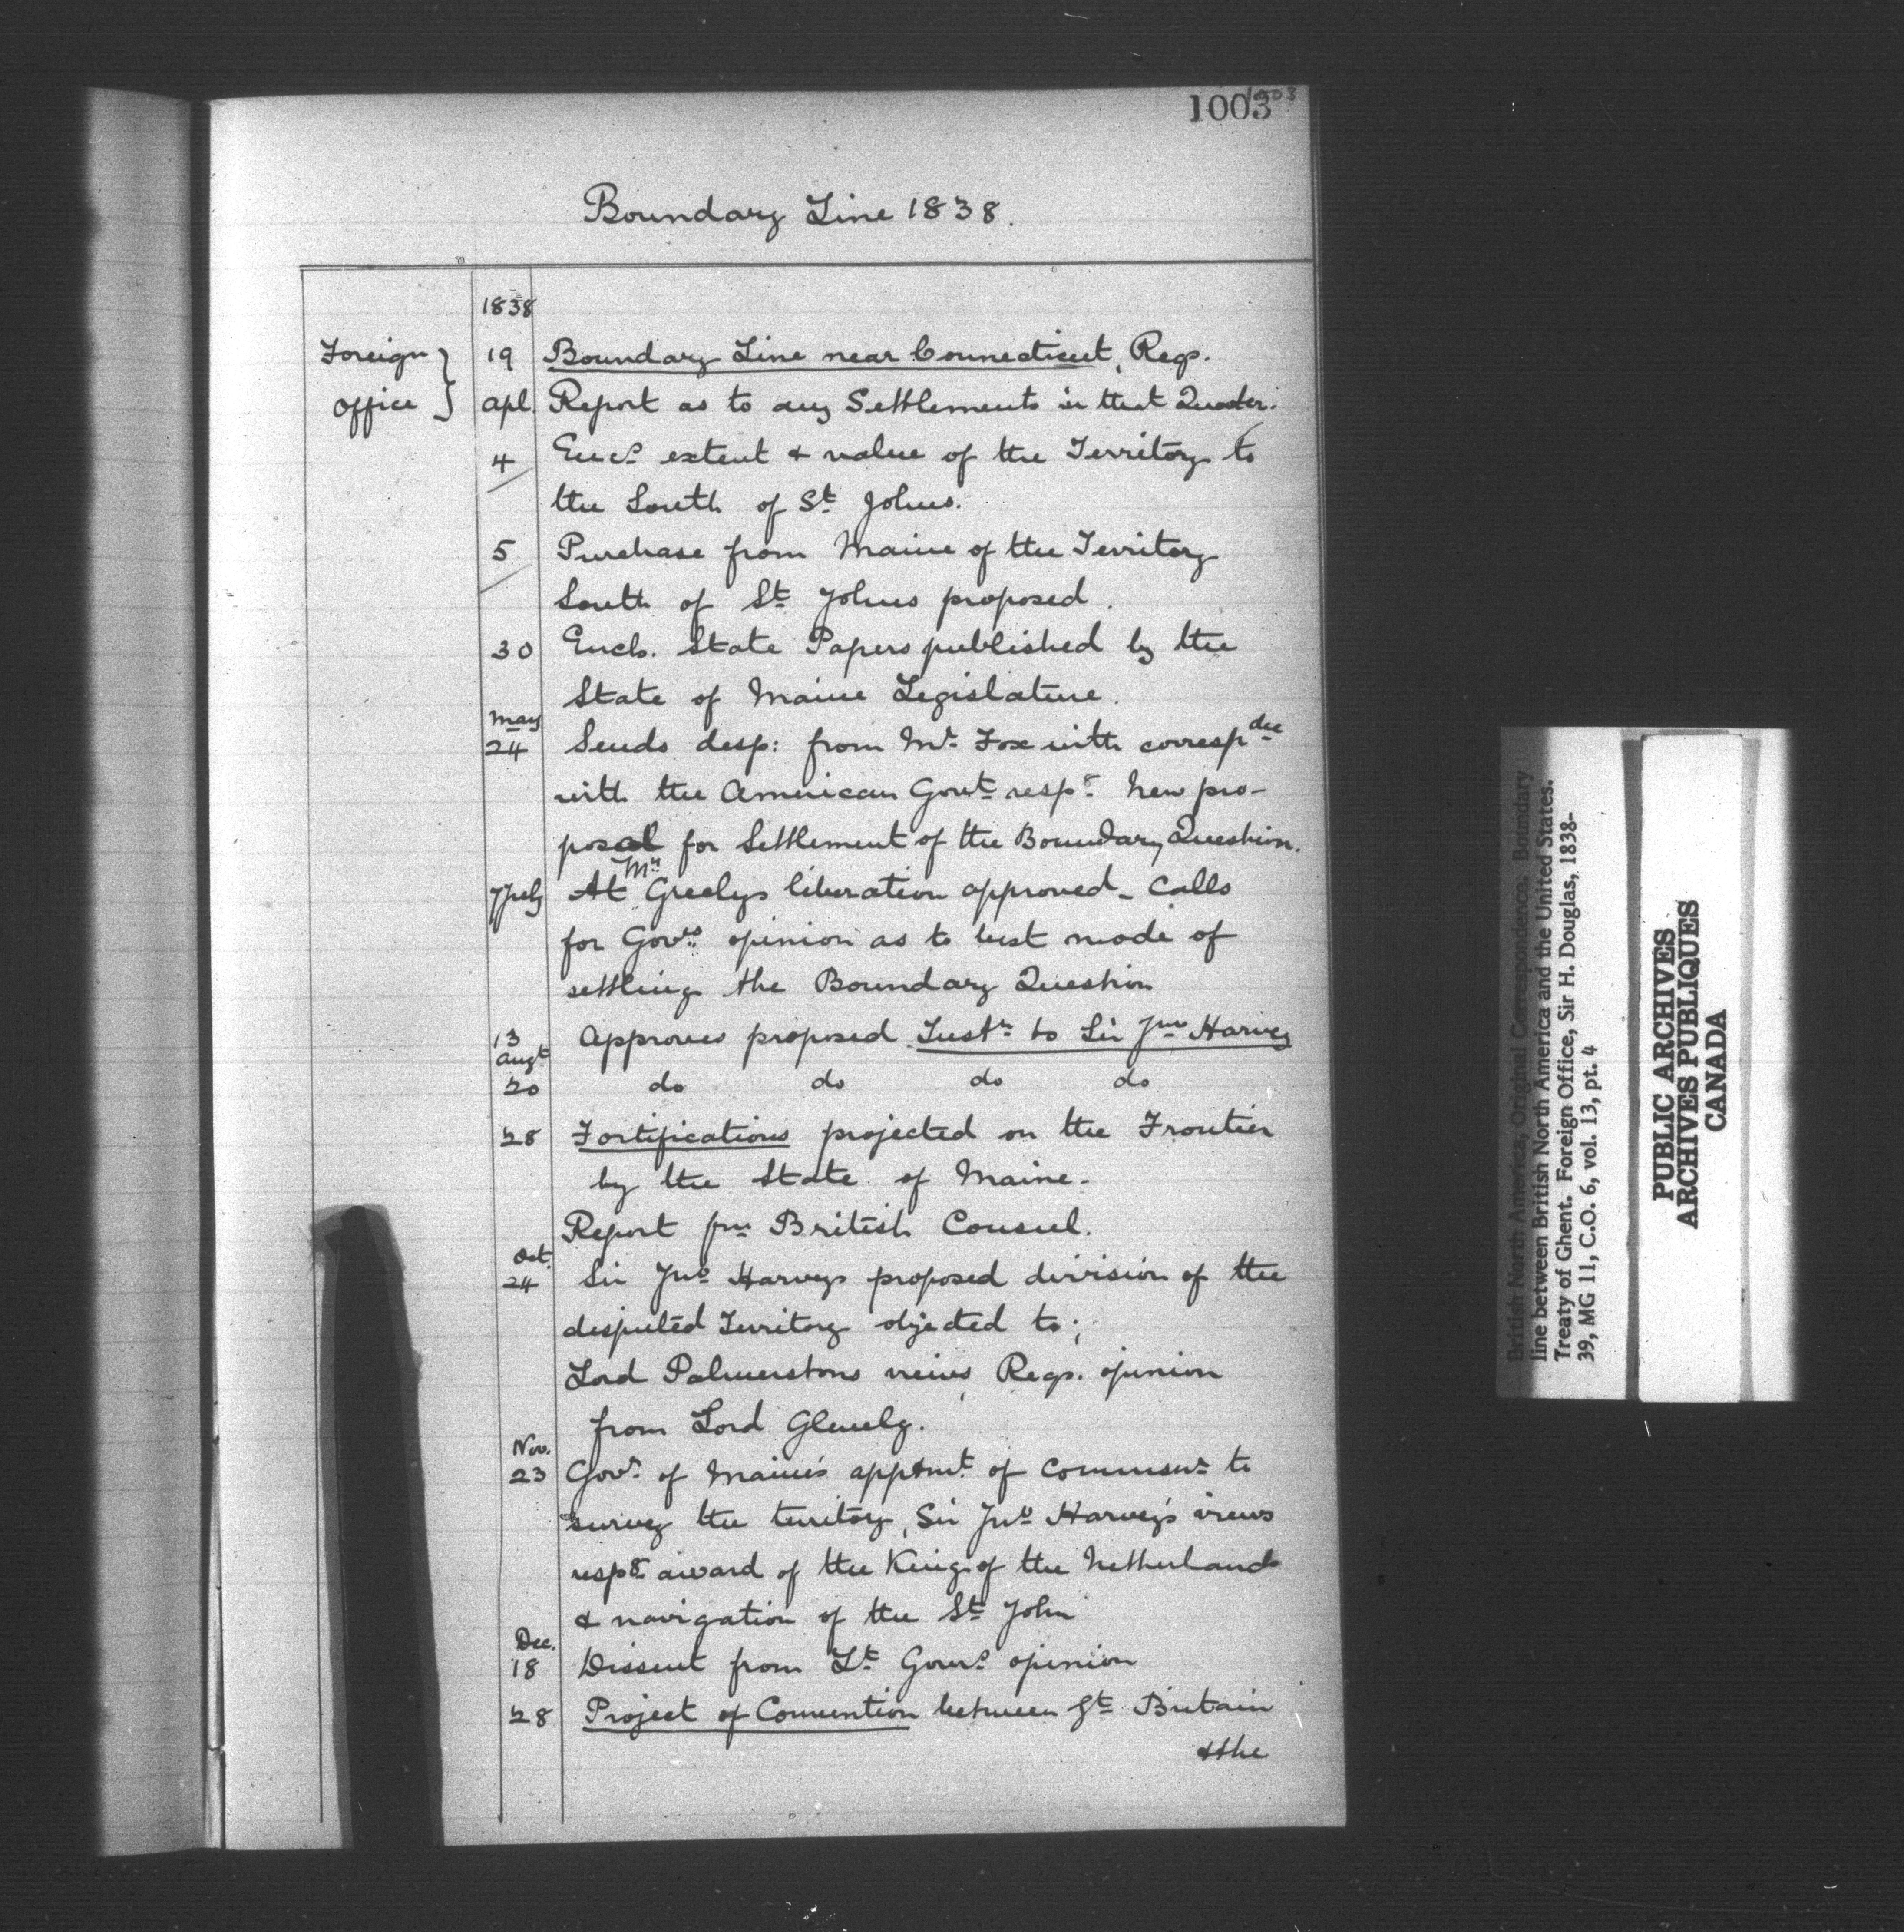 1003
1003
Boundary Line 1838.
1838
Foreign } 19 Boundary Line near Connecticut, Reqs.
Office } Apl. Report as to any Settlements in that Quarter.
4 Encs. extent & value of the Territory to
the South of St Johns.
5 Purchase from Maine of the Territory
South of St Johns proposed.
30 Encls. State Papers published by the
State of Maine Legislature.
May
24 Sends desp: from Mr Fox with correspdce
with the American Govt respg New pro-
posal for Settlement of the Boundary Question.
Mr
7 July At Greelys liberation approved - Calls
for Govrs opinion as to best mode of
settling the Boundary Question
13 Approves proposed Instns to Sir Jno Harvey
Augt
20 do do do do
28 Fortifications projected on the Frontier
by the State of Maine.
Report fm British Consul.
Oct.
24 Sir Jno Harveys proposed division of the
disputed Territory objected to;
Lord Palmerstons views, Reqs. opinion
from Lord Glenelg.
Nov.
23 Govr of Maine's apptmt of Commsnr to
survey the territory, Sir Jno Harvey's views
respg award of the King of the Netherlands
& navigation of the St John
Dec.
18 Dissent from Lt Govrs opinion
28 Project of Convention between Gt Britain
& the
British North America, Original Correspondence. Boundary
line between British North America and the United States.
Treaty of Ghent. Foreign Office, Sir H. Douglas, 1838-
39, MG 11, C.O. 6, vol. 13, pt. 4
PUBLIC ARCHIVES
ARCHIVES PUBLIQUES
CANADA